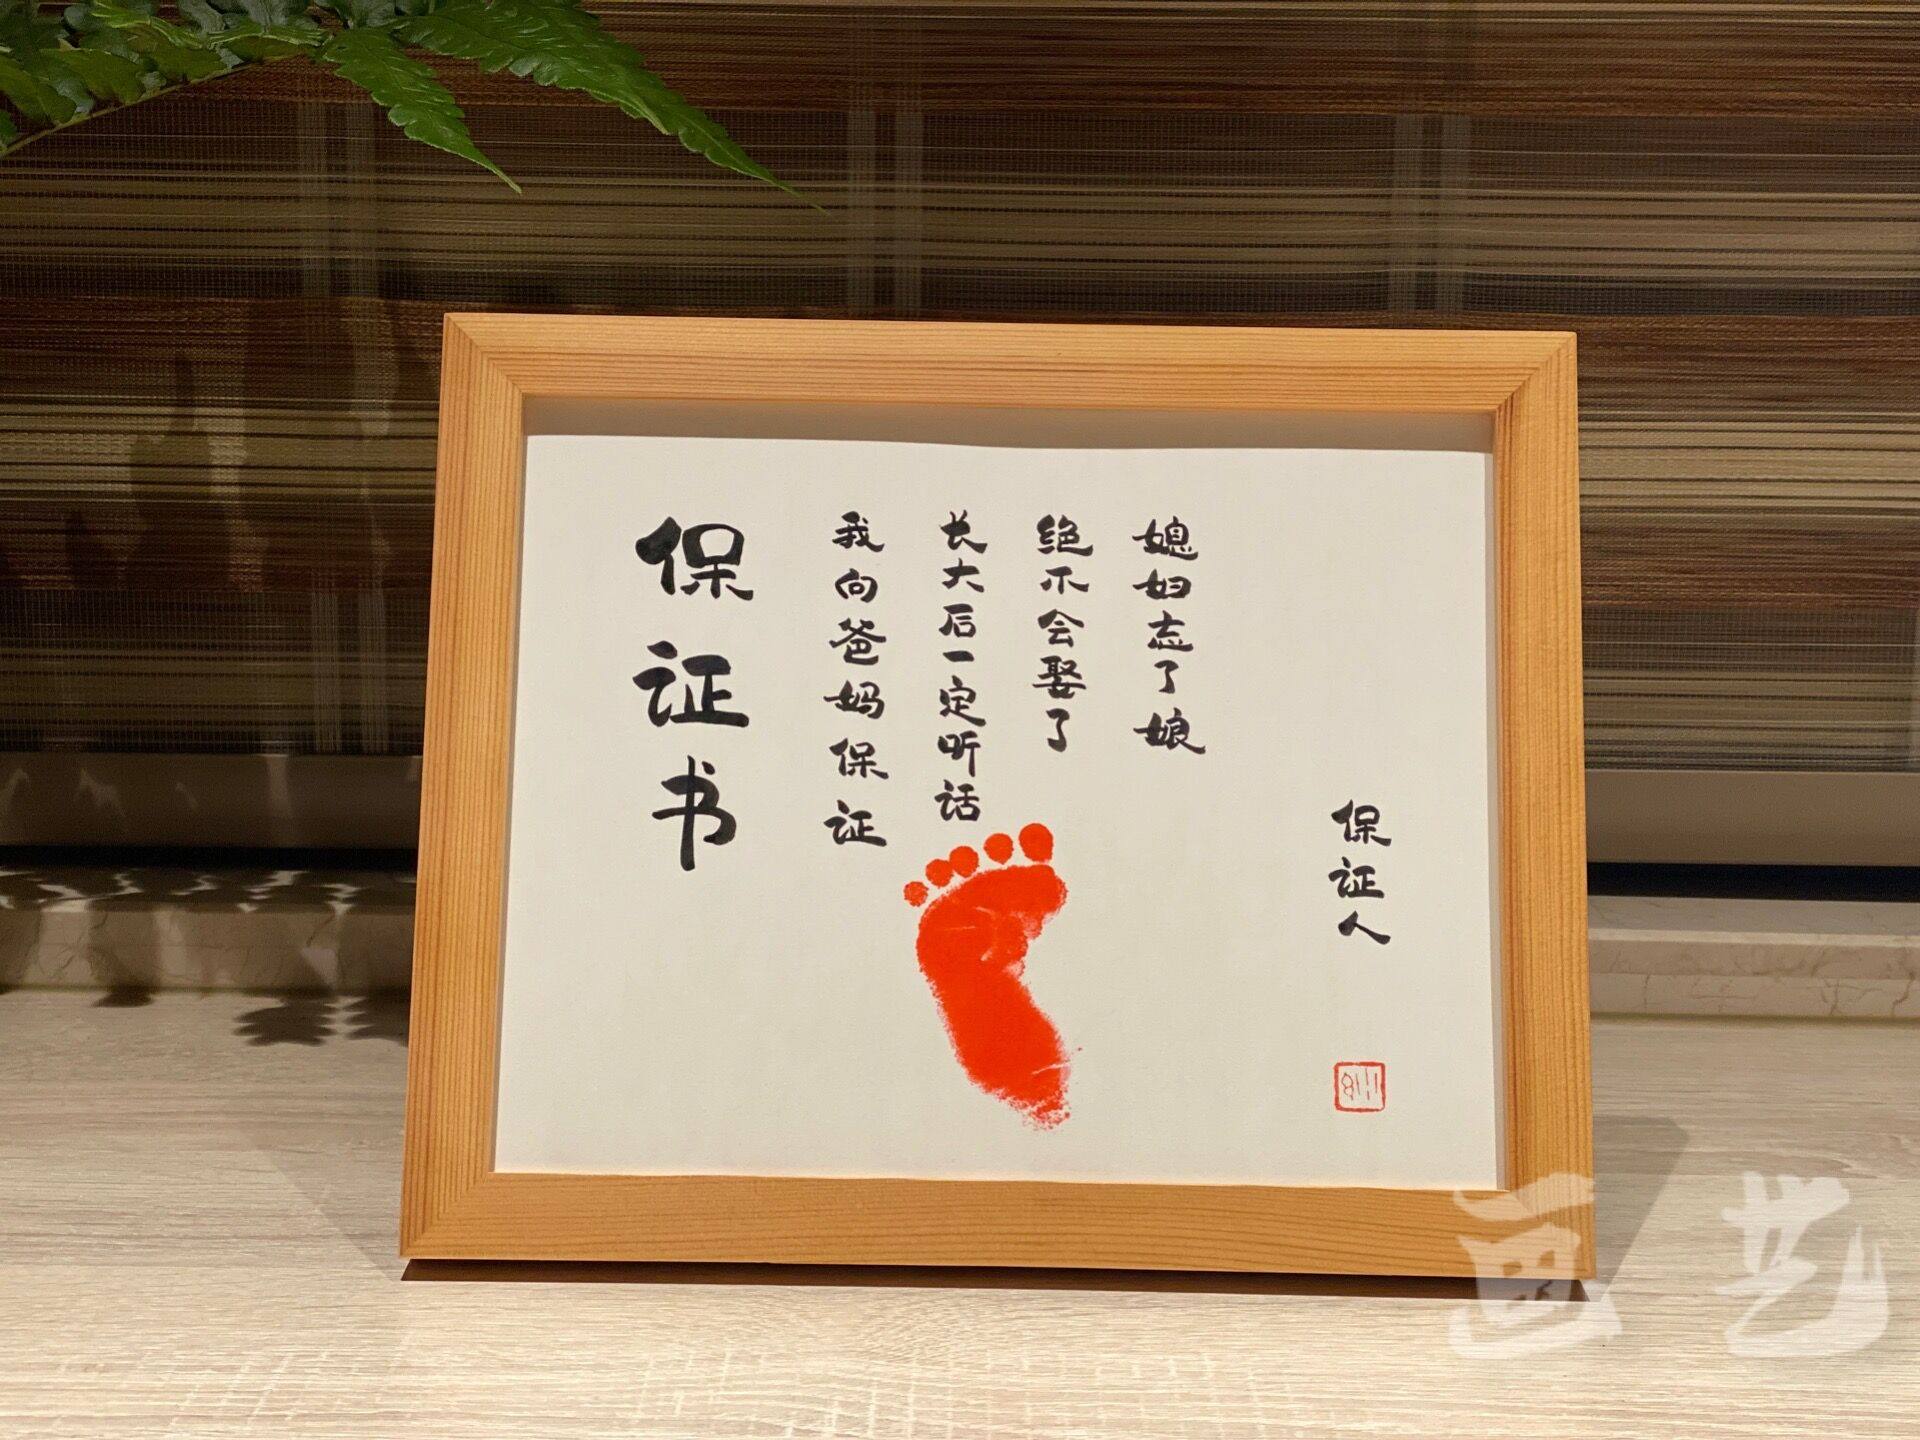 保证书
我向爸妈保证
长大后一定听话
绝不会娶了
媳妇忘了娘
保证人
画艺